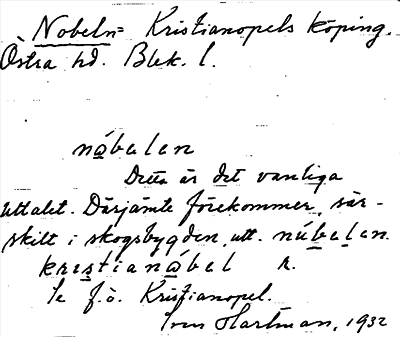 Nobeln = Kristianopels köping.
Östra hd. Blek. l.
nábelen
Detta är det vanliga
uttalet. Därjämte förekommer, sär-
skilt i skogsbygden, utt. núbelen.
kristianábel k.
Se f.ö. Kristianopel.
Hartman, 1932